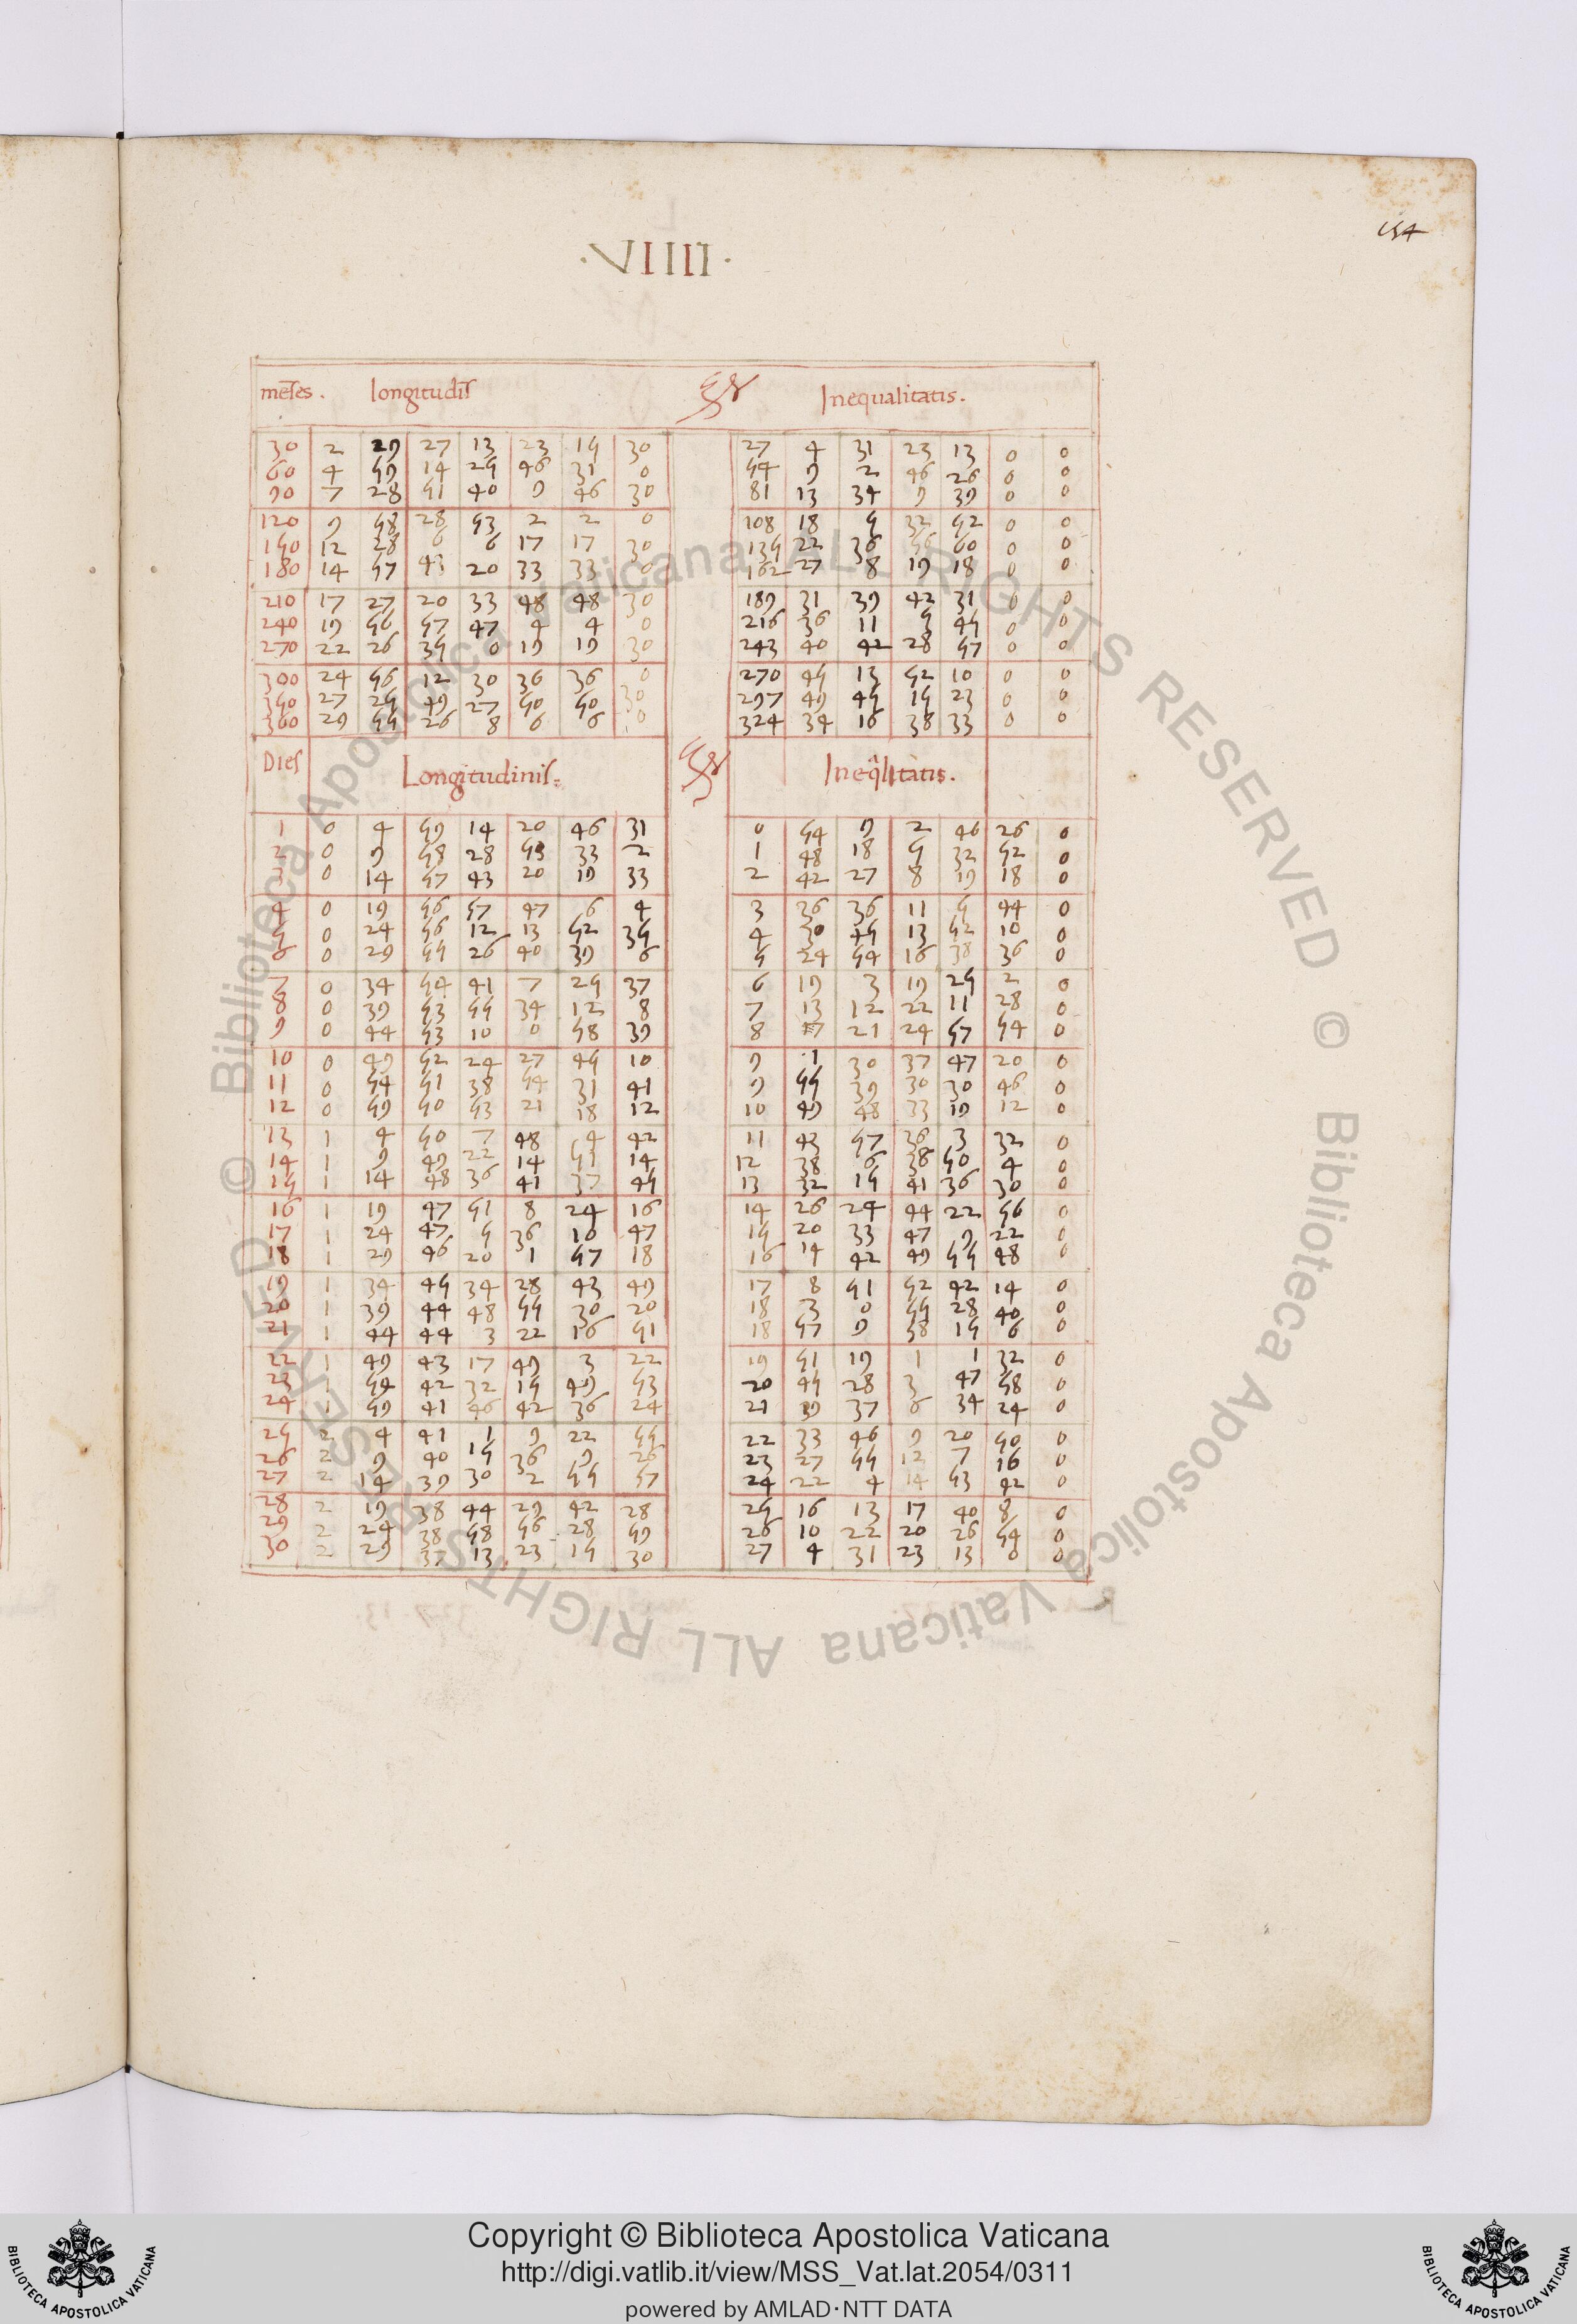 154
·VIIII·
meses. longitudis Inequalitatis.
30 2 29 27 13 23 15 30 27 4 31 23 13 0 0
60 4 59 14 25 46 31 0 54 9 2 46 26 0 0
90 7 28 51 40 9 46 30 81 13 34 9 39 0 0
120 9 58 28 53 2 2 0 108 18 5 32 52 0 0
150 12 28 6 6 17 17 30 135 22 36 56 60 0 0
180 14 57 43 20 33 33 0 162 27 8 19 18 0 0
210 17 27 20 33 48 48 30 189 31 39 42 31 0 0
240 19 56 57 47 4 4 0 216 36 11 5 45 0 0
270 22 26 35 0 19 19 30 243 40 42 28 57 0 0
300 24 56 12 30 36 36 0 270 45 13 52 10 0 0
350 27 25 49 27 50 50 30 297 49 45 15 23 0 0
360 29 55 26 8 6 6 0 324 34 16 38 33 0 0
Dies Longitudinis Ineqlitatis.
1 0 4 59 14 20 46 31 0 54 9 2 46 26 0
2 0 9 58 28 53 33 2 1 48 18 5 32 52 0
3 0 14 57 43 20 19 33 2 42 27 8 19 18 0
4 0 19 56 57 47 6 4 3 36 36 11 5 44 0
5 0 24 56 12 13 52 35 4 30 45 13 52 10 0
6 0 29 55 26 40 39 6 5 24 54 16 38 36 0
7 0 34 54 41 7 25 37 6 19 3 19 25 2 0
8 0 39 53 55 34 12 8 7 13 12 22 11 28 0
9 0 44 53 10 0 58 39 8 7 21 24 57 54 0
10 0 49 52 24 27 45 10 9 1 30 37 47 20 0
11 0 54 51 38 54 31 41 9 55 39 30 30 46 0
12 0 59 50 53 21 18 12 10 49 48 33 19 12 0
13 1 4 50 7 48 4 42 11 43 57 36 3 32 0
14 1 9 49 22 14 51 14 12 38 6 38 50 4 0
15 1 14 48 36 41 37 45 13 32 15 41 36 30 0
16 1 19 47 51 8 24 16 14 26 24 44 22 56 0
17 1 24 47 5 36 10 47 15 20 33 47 9 22 0
18 1 29 46 20 1 57 18 16 14 42 49 55 48 0
19 1 34 45 34 28 43 49 17 8 51 52 42 14 0
20 1 39 44 48 55 30 20 18 3 0 55 28 40 0
21 1 44 44 3 22 16 51 18 57 9 58 15 6 0
22 1 49 43 17 49 3 22 19 51 19 1 1 32 0
23 1 54 42 32 15 49 53 20 45 28 3 47 58 0
24 1 59 41 46 42 36 24 21 39 37 6 34 24 0
25 2 4 41 1 9 22 55 22 33 46 9 20 50 0
26 2 9 40 15 36 9 26 23 27 55 12 7 16 0
27 2 14 39 30 2 55 57 24 22 4 14 53 42 0
28 2 19 38 44 29 42 28 25 16 13 17 40 8 0
29 2 24 38 58 56 28 59 26 10 22 20 26 54 0
30 2 29 37 13 23 15 30 27 4 31 23 13 0 0
© Biblioteca Apostolica Vaticana ALL RIGHTS RESERVED © Biblioteca Apostolica Vaticana ALL RIGHTS RESERVED
Copyright © Biblioteca Apostolica Vaticana
http://digi.vatlib.it/view/MSS_Vat.lat.2054/0311
powered by AMLAD·NTT DATA
BIBLIOTECA APOSTOLICA VATICANA
BIBLIOTECA APOSTOLICA VATICANA